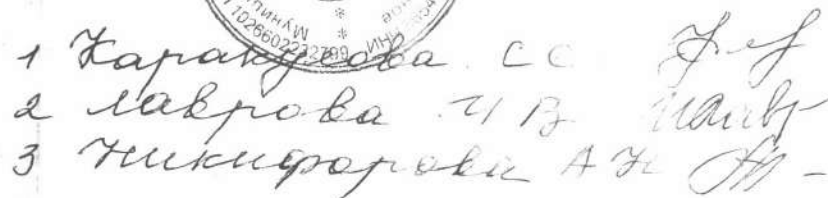 Муници
1026602232799 ИНН
1 Каракулова С С
2 Лаврова И В
3 Никифорова А Н